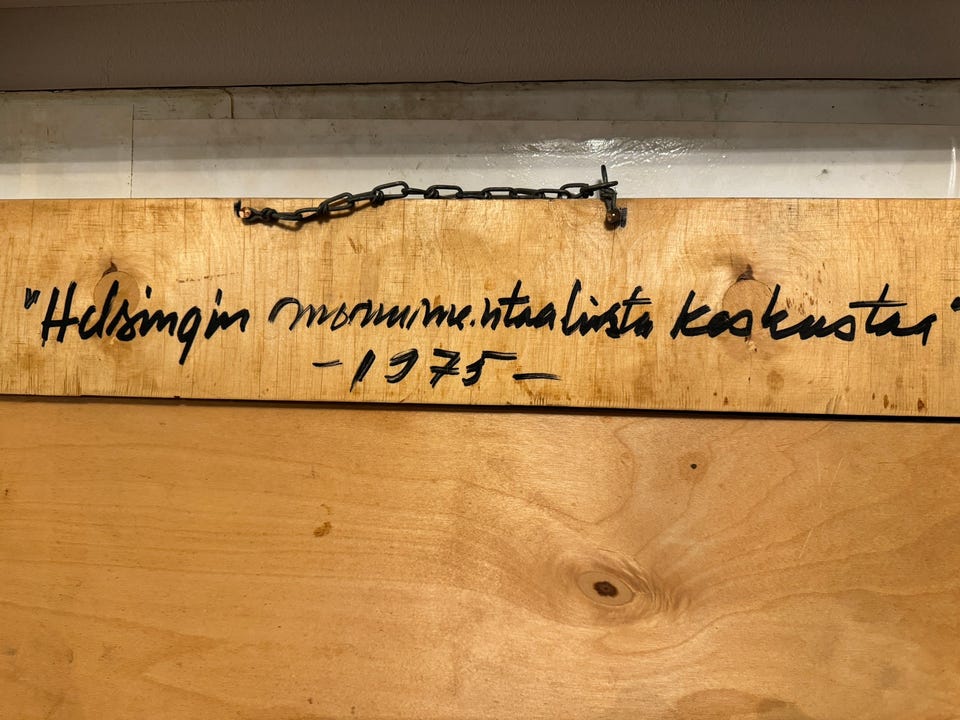 "Helsingin monumentaalista keskustaa"
- 1975 -